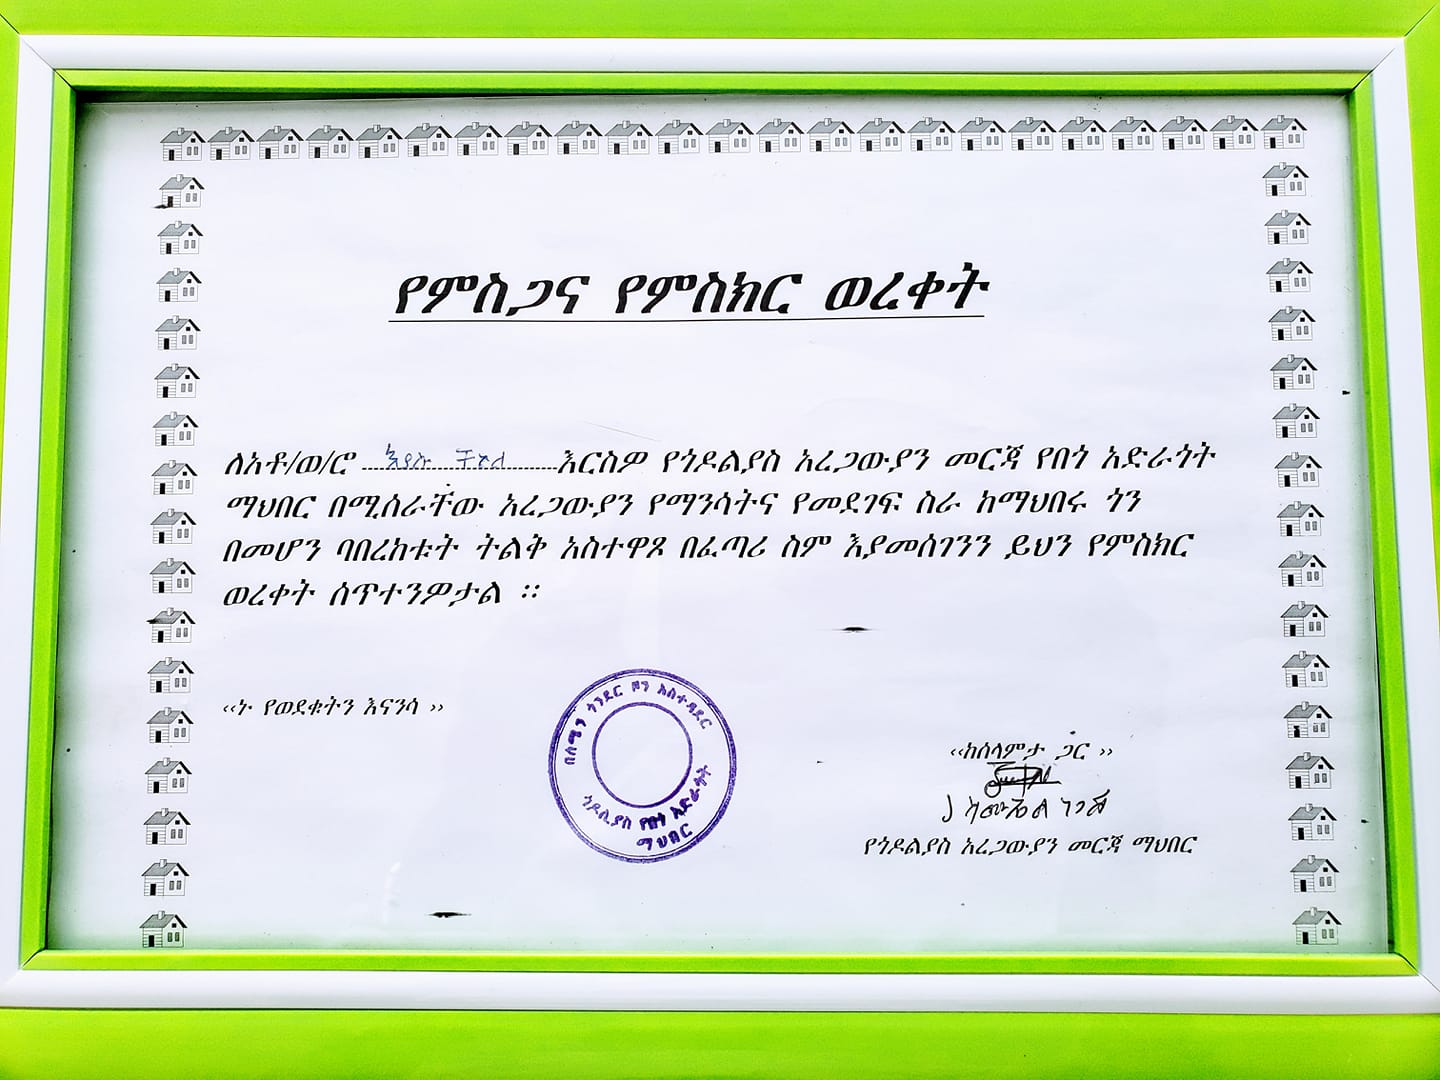 የምስጋና የምስክር ወረቀት
ለአቶ/ወ/ሮ እያሱ እርስዎ የጎዶልያስ አረጋውያን መርጃ የበጎ አድራጎት
ማህበር በሚሰራቸው አረጋውያን የማንሳትና የመደገፍ ስራ ከማህበሩ ጎን
በመሆን ባበረከቱት ትልቅ አስተዋጾ በፈጣሪ ስም እያመሰገንን ይህን የምስክር
ወረቀት ሰጥተንዎታል ፡፡
‹‹ኑ የወደቁትን እናንሳ ››
በሰሜን ጎንደር ዞን አስተዳደር
ጎዶሊያስ የበጎ አድራጎት
ማህበር
‹‹ከሰላምታ ጋር ››
ሳሙኤል ነጋሽ
የጎዶልያስ አረጋውያን መርጃ ማህበር